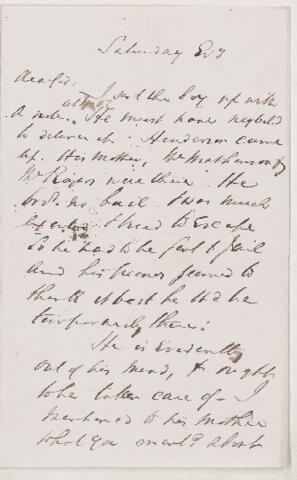 Saturday Evg
Dear Sir,
I sent the boy up with
a note. He must have neglected
to deliver it. Henderson came
up. His mother, Mr Mathewson &
Mr were there. He
had no bail & was much
excited & tried to Escape
So he had to be sent to Jail
and his friends seemed to
think it best he shd be
temporarily there.
He is Evidently
out of his mind, & ought
to be taken care of. I
mentioned to his mother
what you mentd about